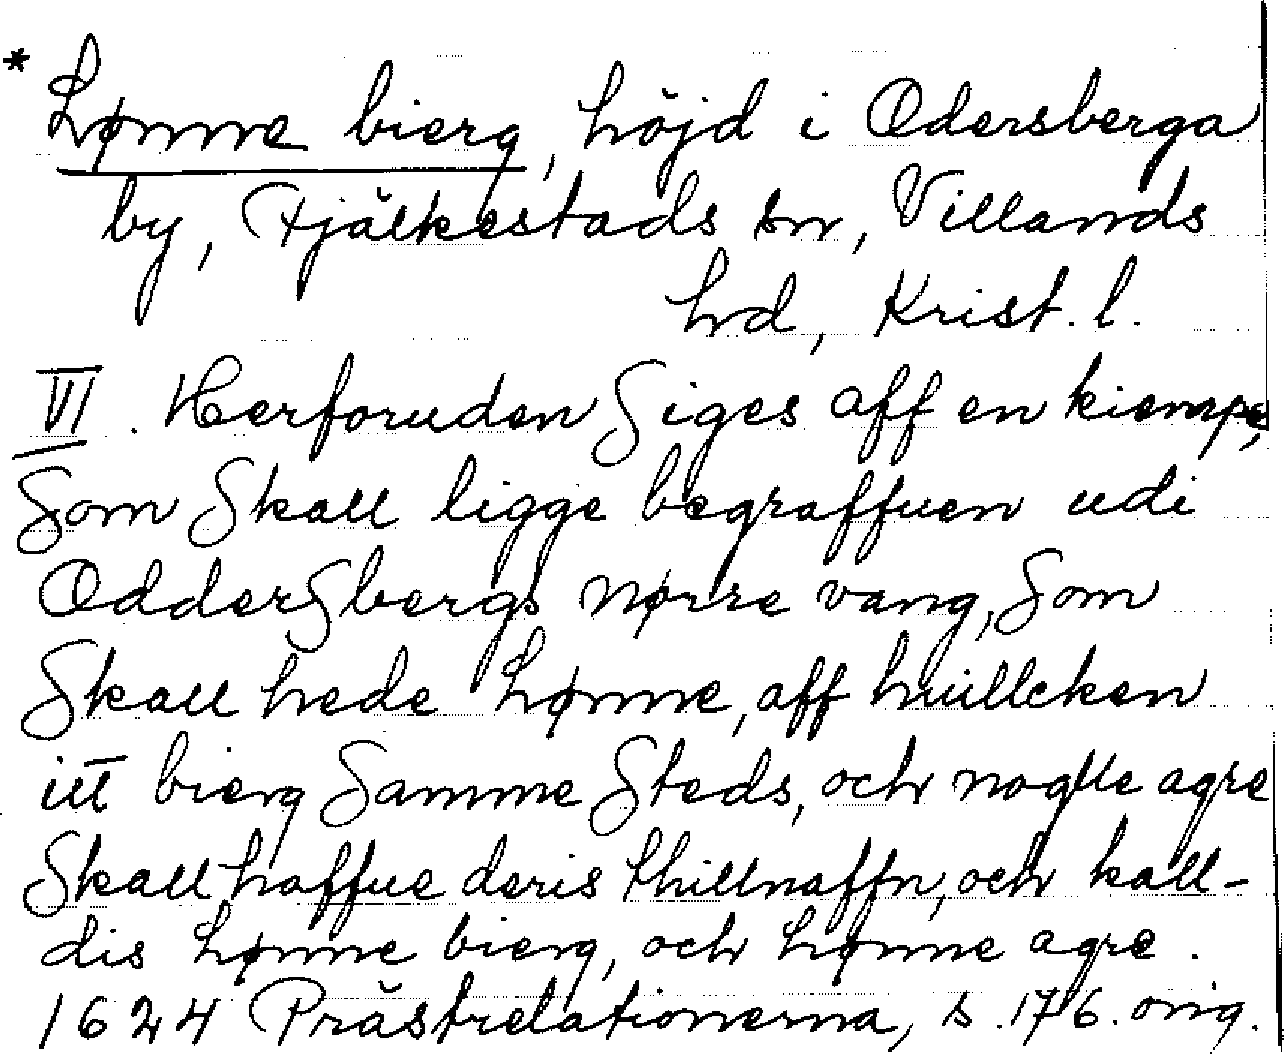 * hønne bierg, höjd i Odersberga
by, Fjälkestads sn, Villands
hd, Krist. l.
VI. Herforuden Siges aff en kiempe,
Som Skall ligge begraffuen udi
OdderSbergs nørre vang, Som
Skall hede hønne, aff huillcken
itt bierg Samme Steds, och nogle agre
Skall haffue deris thillnaffn, och kall-
dis hønne bierg, och hønne agre.
1624 Prästrelationerna, s. 176. orig.